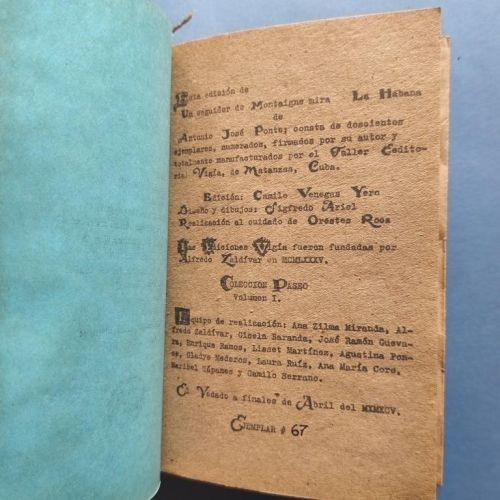 Esta edición de
Un seguidor de Montaigne mira La Habana
de
Antonio José Ponte; consta de doscientos
ejemplares, numerados, firmados por su autor y
totalmente manufacturados por el Taller Edito-
rial Vigía, de Matanzas, Cuba.
Edición: Camilo Venegas Yero
Diseño y dibujos: Sigfredo Ariel
Realización al cuidado de Orestes Roca
Las Ediciones Vigía fueron fundadas por
Alfredo Zaldívar en MCMLXXXV.
Colección Paseo
Volumen I.
Equipo de realización: Ana Zilma Miranda, Al-
fredo Zaldívar, Gisela Baranda, José Ramón Gueva-
ra, Enrique Ramos, Lisset Martínez, Agustina Pon-
ce, Gladys Mederos, Laura Ruíz, Ana María Coro,
Maribel Cápanes y Camilo Serrano.
El Vedado a finales de Abril del MXMXCV.
Ejemplar # 67